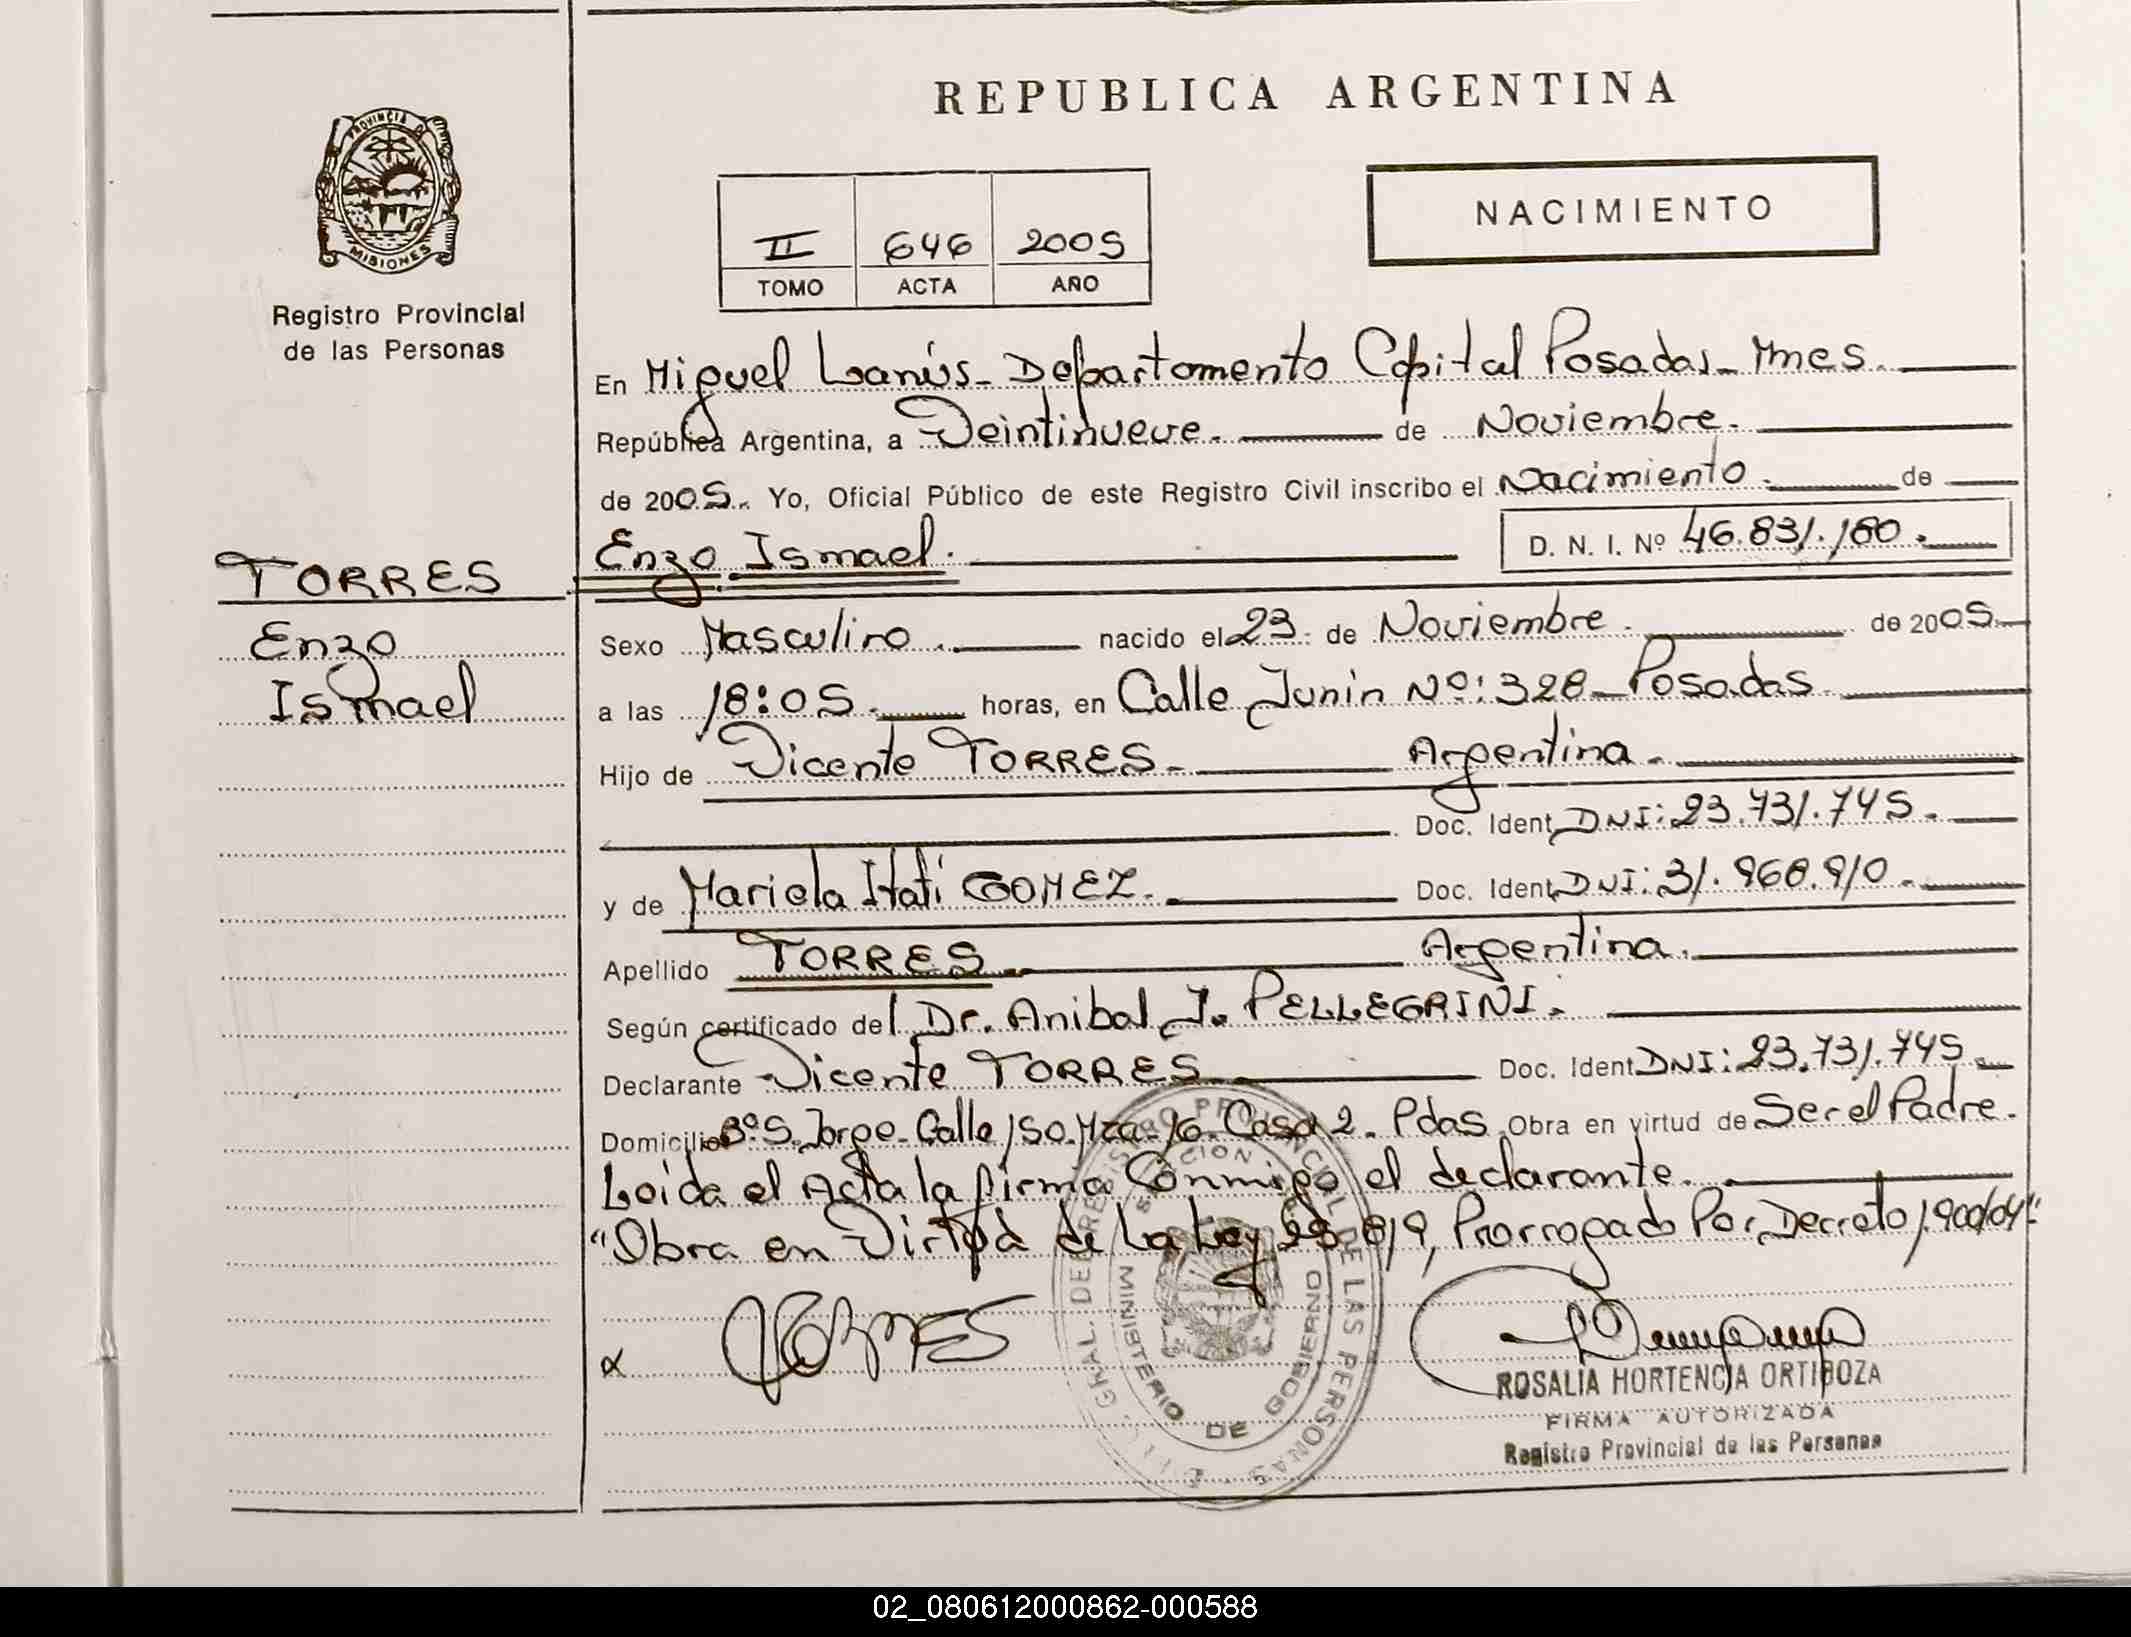 REPUBLICA ARGENTINA
PROVINCIA DE
MISIONES
Registro Provincial
de las Personas
II 646 2005
TOMO ACTA AÑO
NACIMIENTO
En Miguel Lanús - Departamento Capital Posadas - Mnes.
República Argentina, a Veintinueve. de Noviembre.
de 2005. Yo, Oficial Público de este Registro Civil inscribo el Nacimiento. de
Enzo Ismael. D. N. I. Nº 46.831.180.
TORRES
Enzo
Ismael
Sexo Masculino. nacido el 23 de Noviembre. de 2005
a las 18:05. horas, en Calle Junin Nº: 328 - Posadas
Hijo de Vicente TORRES - Argentina.
Doc. Ident. DNI: 23.731.745.
y de Mariela Itatí GOMEZ. Doc. Ident. DNI: 31.968.910.
Apellido TORRES. Argentina.
Según certificado del Dr. Anibal J. PELLEGRINI.
Declarante Vicente TORRES Doc. Ident DNI: 23.731.745
Domicilio Bº S. Jorge - Calle 150. Mza - 16 - Casa 2. Pdas. Obra en virtud de Ser el Padre.
Leida el Acta la firma Conmigo el declarante.
"Obra en Virtud de la Ley 25.819, Prorrogado Por Decreto 1.900/04".
MINISTERIO DE GOBIERNO
ROSALIA HORTENCIA ORTIGOZA
FIRMA AUTORIZADA
Registro Provincial de las Personas
02_080612000862-000588